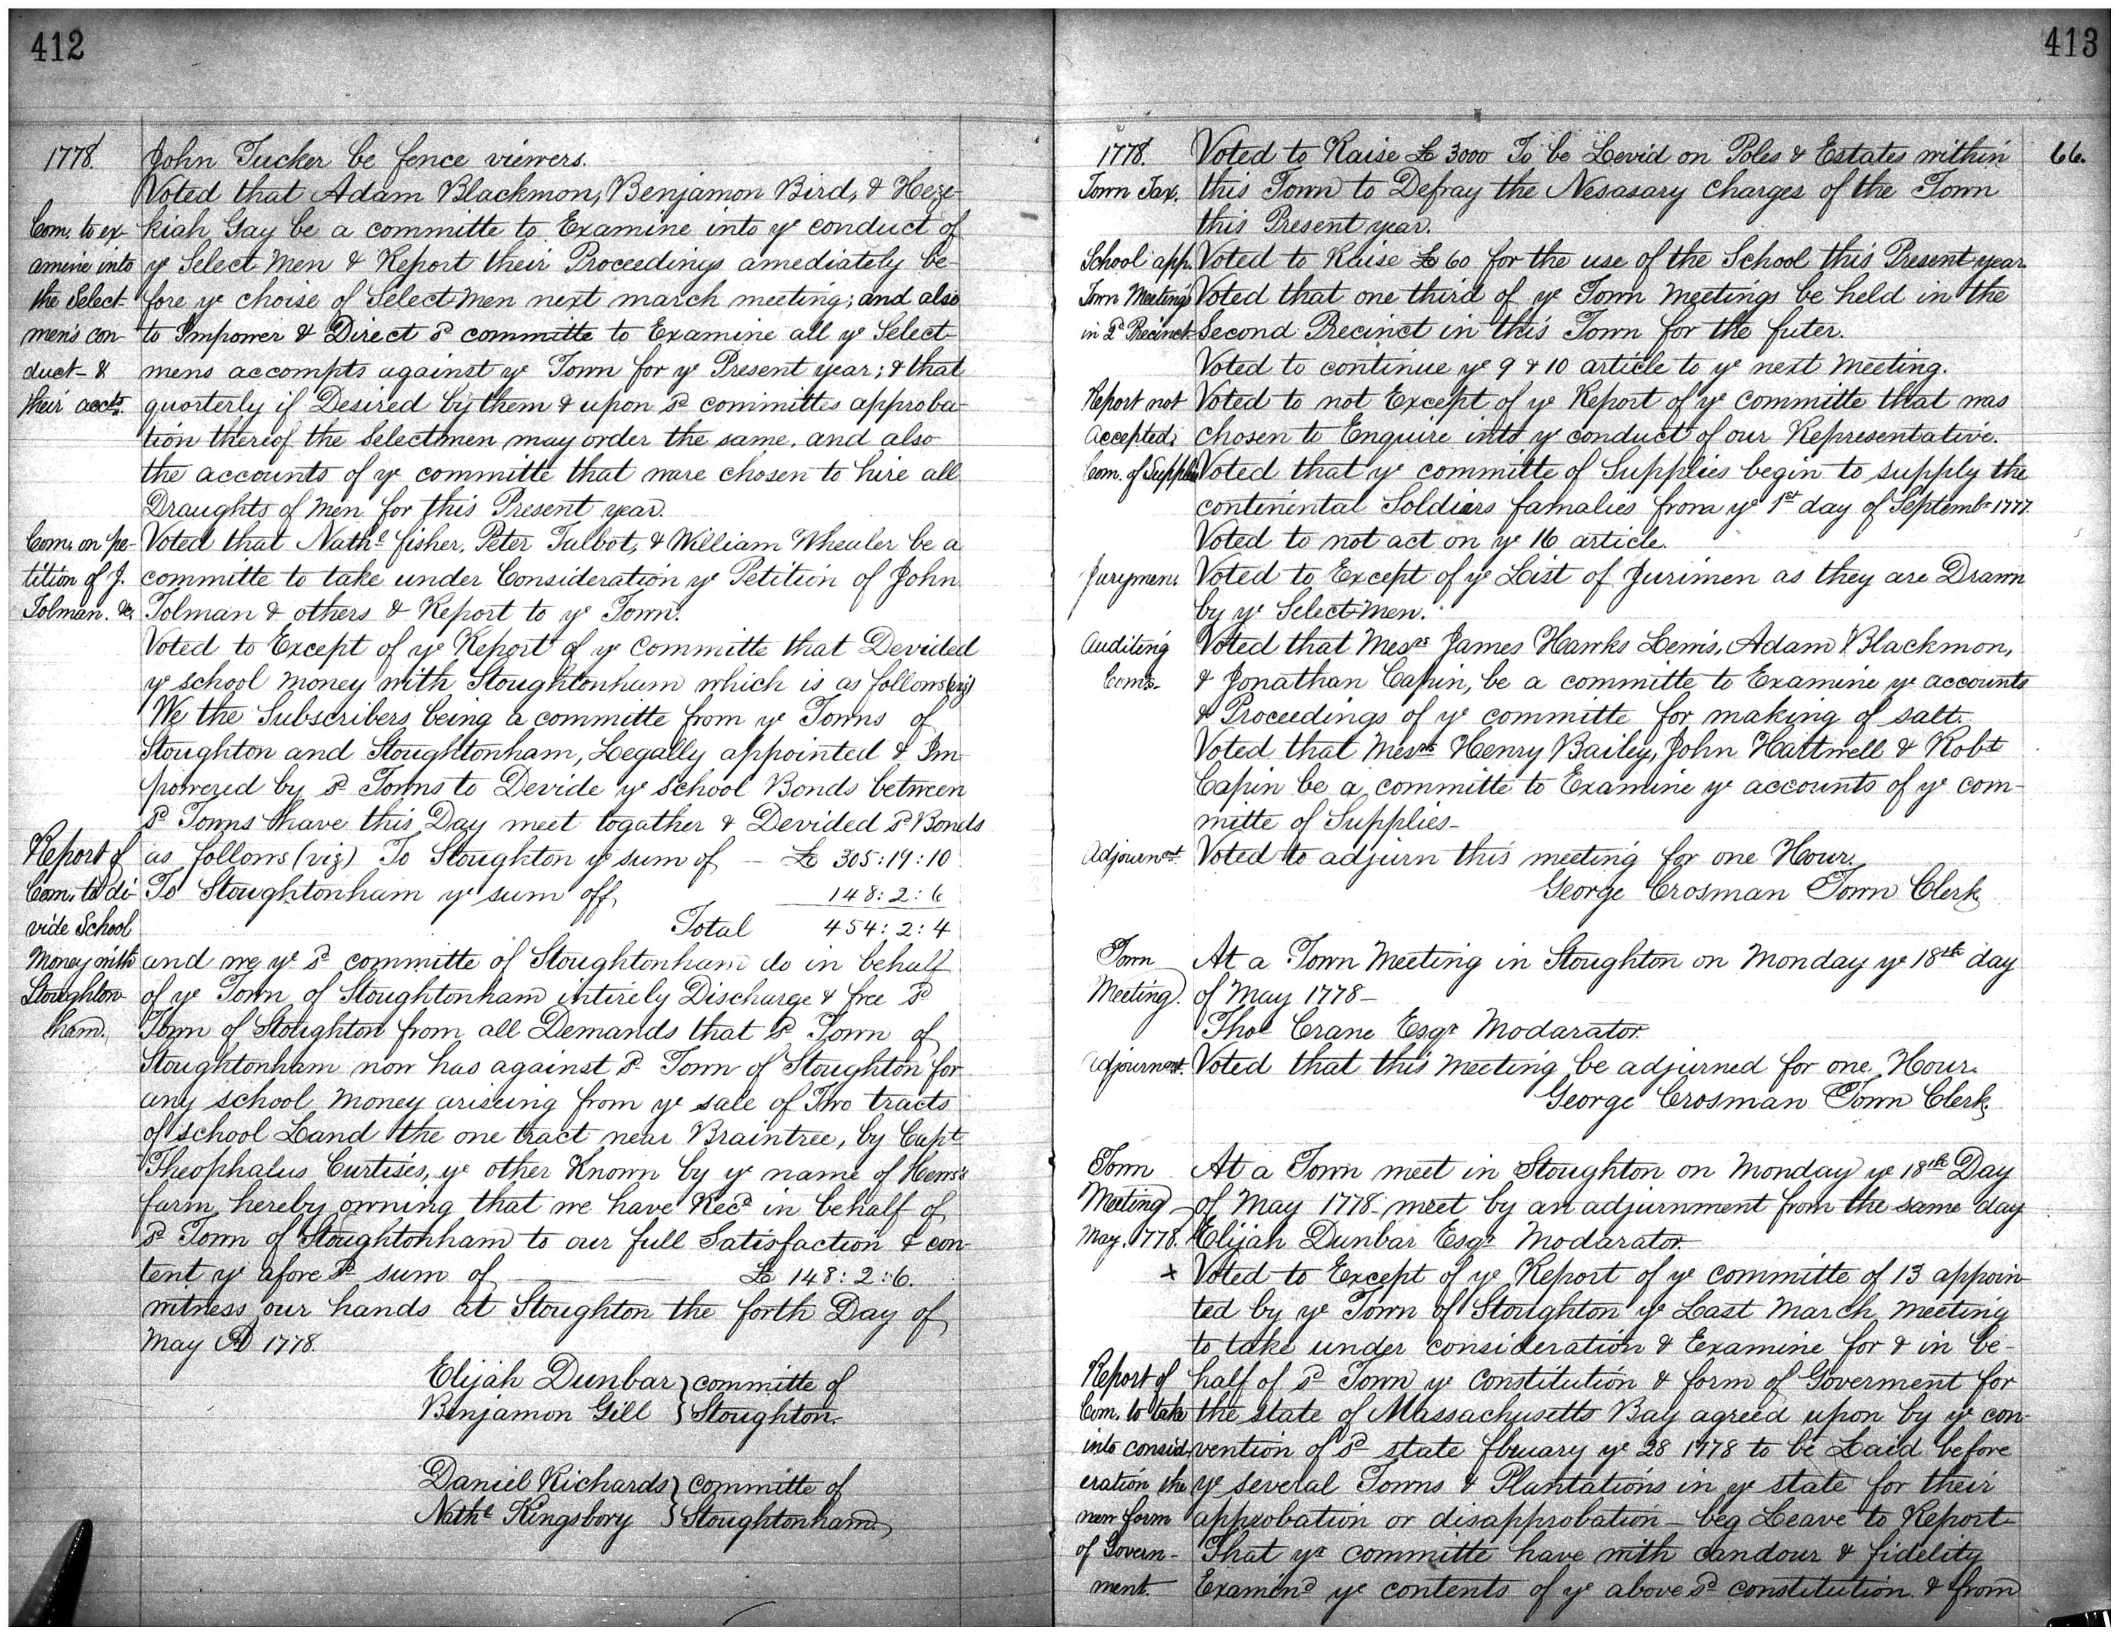 412
1778. John Tucker be fence viewers.
Voted that Adam Blackmon, Benjamon Bird, & Heze-
Com. to ex- kiah Gay be a committe to Examine into ye conduct of
amine into ye Select Men & Report their Proceedings amediately be-
the Select- fore ye choise of Select Men next march meeting; and also
men's con- to Impower & Direct sd committe to Examine all ye Select-
duct- & mens accompts against ye Town for ye Present year; & that
their accts. quorterly if Desired by them & upon sd committes approba-
tion thereof the Selectmen may order the same. and also
the accounts of ye committe that ware chosen to hire all
Draughts of Men for this Present year.
Com. on pe- Voted that Nathl fisher, Peter Talbot, & William Wheuler be a
tition of J. committe to take under Consideration ye Petition of John
Tolman. &c. Tolman & others & Report to ye Town.
Voted to Except of ye Report of ye committe that Devided
ye school money with Stoughtonham which is as follows (viz)
We the Subscribers being a committe from ye Towns of
Stoughton and Stoughtonham, Legally appointed & Im-
powered by sd Towns to Devide ye school Bonds between
sd Towns have this Day meet togather & Devided sd Bonds
Report of as follows (viz) To Stoughton ye sum of — £ 305:19:10
Com. to di- To Stoughtonham ye sum off, 148: 2: 6
vide School Total 454: 2: 4
Money with and we ye sd committe of Stoughtonham do in behalf
Stoughton- of ye Town of Stoughtonham intirely Discharge & free sd
ham. Town of Stoughton from all Demands that sd Town of
Stoughtonham now has against sd Town of Stoughton for
any school money ariseing from ye sale of Two tracts
of school Land the one tract near Braintree, by Capt
Theophalus Curtises, ye other Known by ye name of Hews's
farm, hereby owning that we have Recd in behalf of
sd Town of Stoughtonham to our full Satisfaction & con-
tent ye afore sd sum of — £ 148: 2: 6.
witness our hands at Stoughton the forth Day of
May AD 1778.
Elijah Dunbar } committe of
Benjamon Gill } Stoughton.
Daniel Richards } committe of
Nathl Kingsbory } Stoughtonham.
413
66.
1778. Voted to Raise £ 3000 To be Levid on Poles & Estates within
Town Tax. this Town to Defray the Nesasary charges of the Town
this Present year.
School app. Voted to Raise £ 60 for the use of the School this Present year.
Town Meetings Voted that one third of ye Town Meetings be held in the
in 2d Precinct- Second Precinct in this Town for the futer.
Voted to continue ye 9 & 10 article to ye next meeting.
Report not Voted to not Except of ye Report of ye committe that was
Accepted. chosen to Enquire into ye conduct of our Representative.
Com. of Supplies Voted that ye committe of Supplies begin to supply the
continental Soldiers famalies from ye 1st day of Septembr 1777.
Voted to not act on ye 16 article.
Jurymen. Voted to Except of ye List of Jurimen as they are Drawn
by ye Select Men.
Auditing Voted that Messrs James Hawks Lewis, Adam Blackmon,
Com.- & Jonathan Capin, be a committe to Examine ye accounts
& Proceedings of ye committe for making of salt.
Voted that Messrs Henry Bailey, John Hattwell & Robt
Capin be a committe to Examine ye accounts of ye com-
mitte of Supplies-
Adjournmt. Voted to adjurn this meeting for one Hour.
George Crosman Town Clerk.
Town At a Town Meeting in Stoughton on Monday ye 18th day
Meeting. of May 1778-
Thos Crane Esqr Modarator.
Adjournmt. Voted that this Meeting be adjurned for one Hour.
George Crosman Town Clerk.
Town At a Town meet in Stoughton on Monday ye 18th Day
Meeting of May 1778- meet by an adjurnment from the same day
May. 1778. Elijah Dunbar Esqr Modarator.
x Voted to Except of ye Report of ye committe of 13 appoin-
ted by ye Town of Stoughton ye Last March meeting
to take under consideration & Examine for & in be-
Report of half of sd Town ye constitution & form of Goverment for
Com. to take the state of Massachusetts Bay agreed upon by ye con-
into consid- vention of sd state fbruary ye 28 1778 to be Laid before
eration the ye several Towns & Plantations in ye state for their
new form approbation or disapprobation- beg Leave to Report-
of Govern- That yr committe have with candour & fidelity
ment. Examind ye contents of ye above sd constitution & from